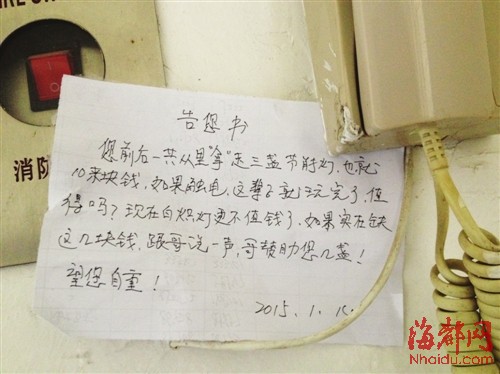 告您书
您前后一共从里"拿"走三盏节能灯,也就
10来块钱,如果触电,这辈子就玩完了,值
得吗?现在白炽灯更不值钱了,如果实在缺
这几块钱,跟哥说一声,哥赞助您几盏!
望您自重!
2015.1.
消防
海都网
Nhaidu.com